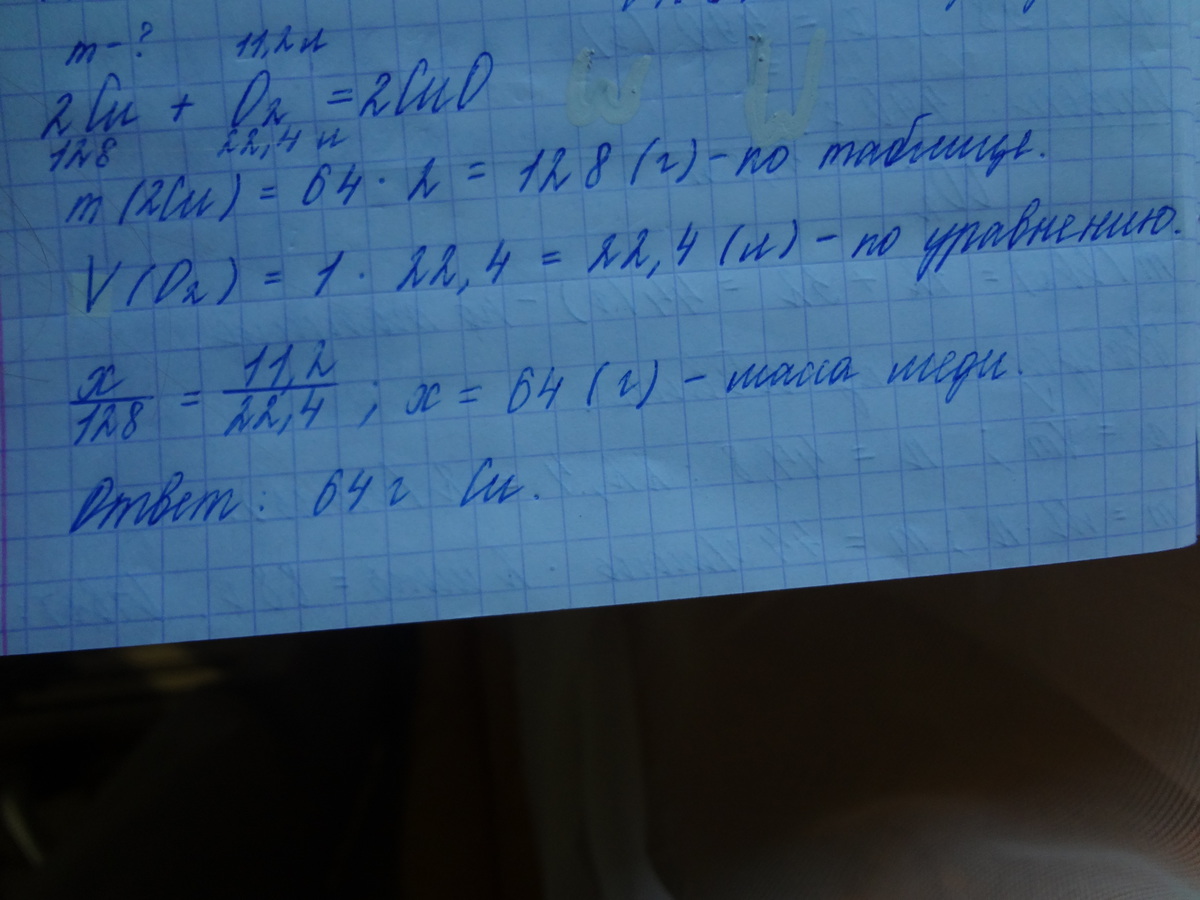 m - ? 11,2 л
2Cu + O₂ = 2CuO
128 22,4 л
m (2Cu) = 64 · 2 = 128 (г) - по таблице.
V (O₂) = 1 · 22,4 = 22,4 (л) - по уравнению.
x/128 = 11,2/22,4 ; x = 64 (г) - масса меди.
Ответ: 64 г Cu.